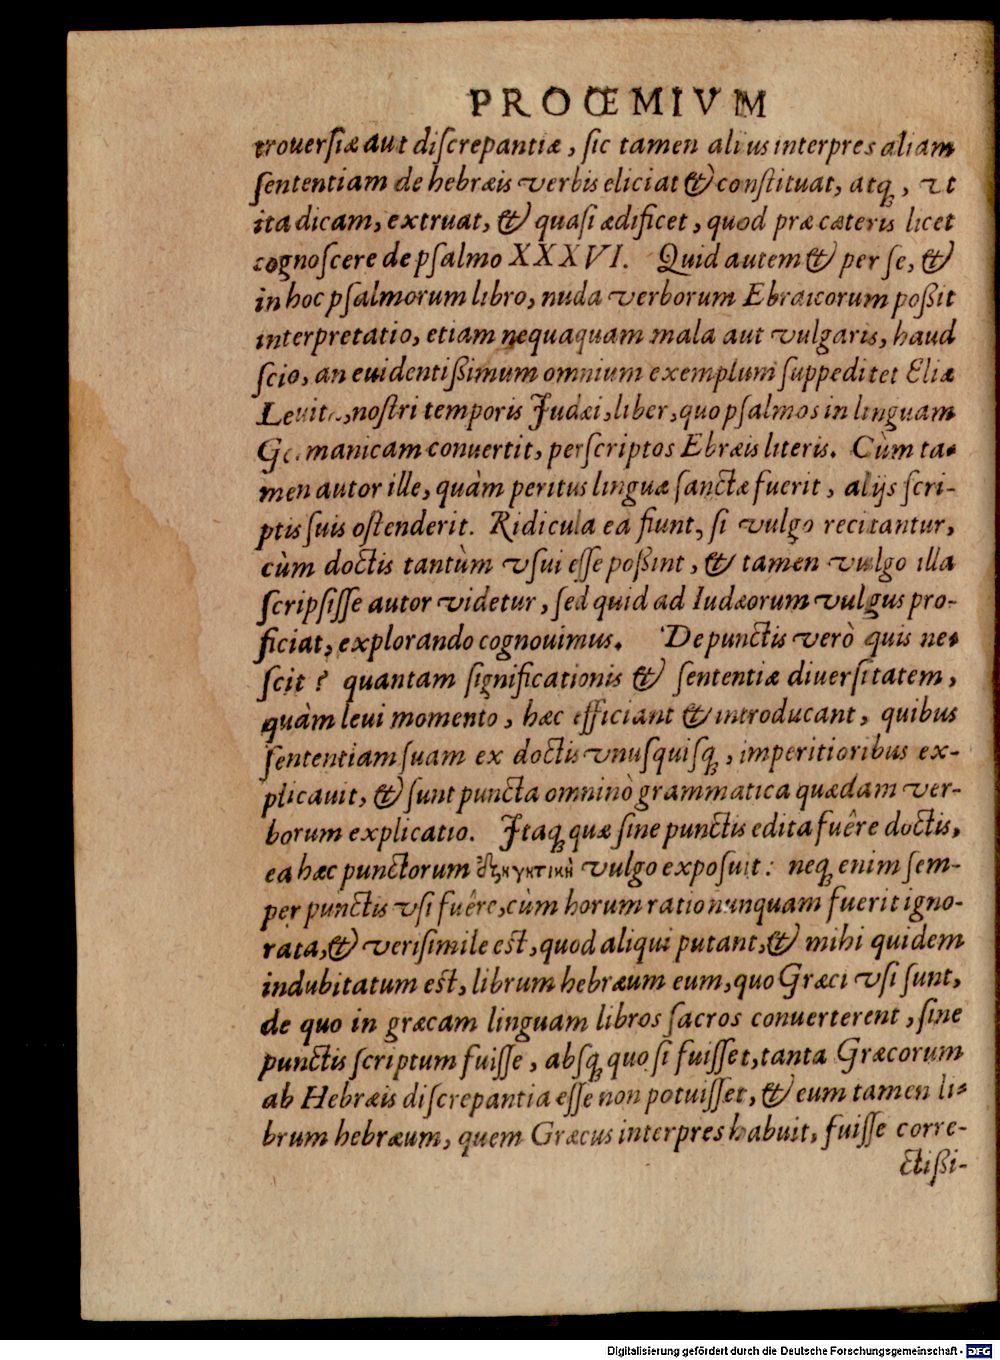 PROŒMIVM
trouersiæ aut discrepantiæ, sic tamen alius interpres aliam
sententiam de hebræis verbis eliciat & constituat, atq;, vt
ita dicam, extruat, & quasi ædificet, quod præ cæteris licet
cognoscere de psalmo XXXVI. Quid autem & per se, &
in hoc psalmorum libro, nuda verborum Ebraicorum poßit
interpretatio, etiam nequaquam mala aut vulgaris, haud
scio, an euidentißimum omnium exemplum suppeditet Eliæ
Leuitæ, nostri temporis Judæi, liber, quo psalmos in linguam
Germanicam conuertit, perscriptos Ebræis literis. Cùm ta-
men autor ille, quàm peritus linguæ sanctæ fuerit, alijs scri-
ptis suis ostenderit. Ridicula ea fiunt, si vulgo recitantur,
cùm doctis tantùm vsui esse poßint, & tamen vulgo illa
scripsisse autor videtur, sed quid ad Iudæorum vulgus pro-
ficiat, explorando cognouimus. De punctis verò quis ne-
scit? quantam significationis & sententiæ diuersitatem,
quàm leui momento, hæc efficiant & introducant, quibus
sententiam suam ex doctis vnusquisq;, imperitioribus ex-
plicauit, & sunt puncta omninò grammatica quædam ver-
borum explicatio. Itaq; quæ sine punctis edita fuêre doctis,
ea hæc punctorum ἐξηγητικὴ vulgo exposuit: neq; enim sem-
per punctis vsi fuêre, cùm horum ratio nunquam fuerit igno-
rata, & verisimile est, quod aliqui putant, & mihi quidem
indubitatum est, librum hebræum eum, quo Græci vsi sunt,
de quo in græcam linguam libros sacros conuerterent, sine
punctis scriptum fuisse, absq; quo si fuisset, tanta Græcorum
ab Hebræis discrepantia esse non potuisset, & eum tamen li-
brum hebræum, quem Græcus interpres habuit, fuisse corre-
ctißi-
Digitalisierung gefördert durch die Deutsche Forschungsgemeinschaft - DFG